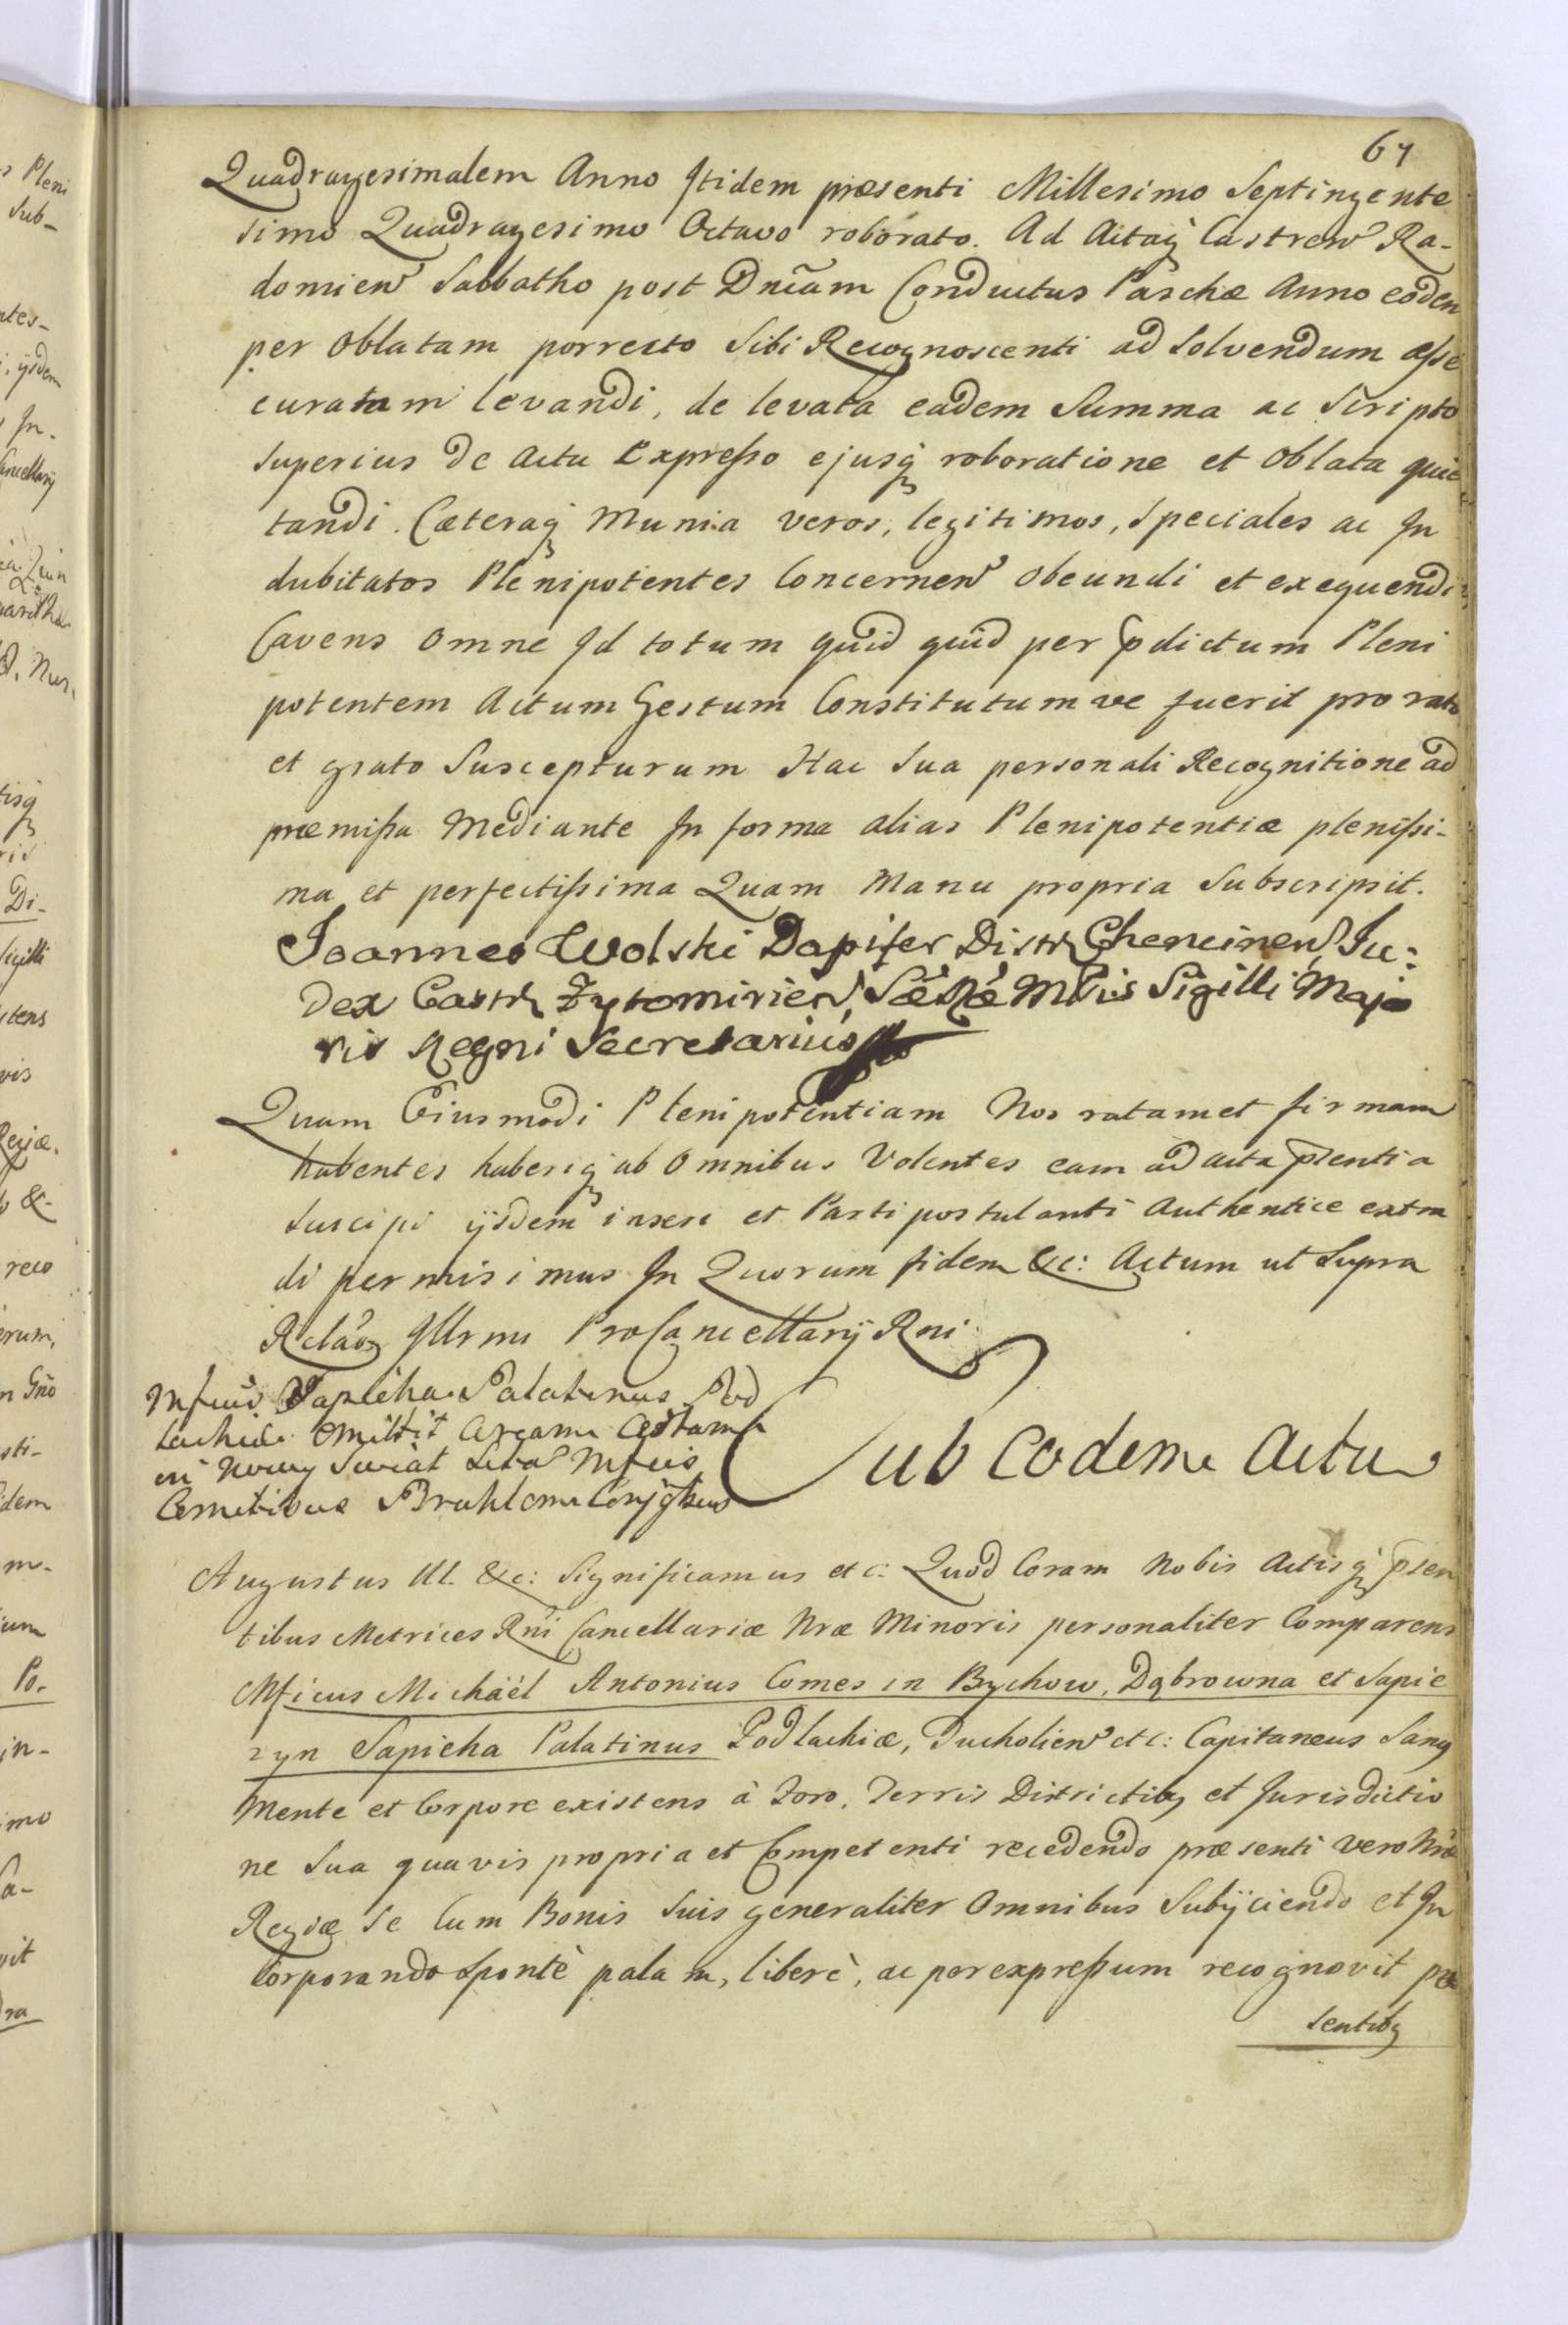 67
Quadragesimalem Anno Itidem præsenti Millesimo Septingente
simo Quadragesimo Octavo roborato. Ad Actaq̃ Castren̄ Ra-
domien̄ Sabbatho post Dnicam Conductus Paschæ Anno eodem
per Oblatam porrecto Sibi Recognoscenti ad Solvendum asse
curatam levandi, de levata eadem Summa ac Scripto
superius de Actu Expresso ejusq̃ roboratione et Oblata quie
tandi. Cæteraq̃ Munia veros, legitimos, Speciales ac In
dubitatos Plenipotentes Concernen̄ obeundi et exequendi
Cavens Omne Id totum quid quid per p̃dictum Pleni
potentem Actum Gestum Constitutum ve fuerit pro rato
et grato Suscepturum Hac Sua personali Recognitione ad
præmissa Mediante In forma alias Plenipotentiæ plenissi-
ma et perfectissima Quam Manu propria Subscripsit.
Joannes Wolski Dapifer Distr. Chencinen̄ Ju:
dex Castr. Zytomirien̄, Sæ Ræ Mtis Sigilli Majo
ris Regni Secretarius
Quam Eiusmodi Plenipotentiam Nos ratam et firmam
habentes haberiq̃ ab Omnibus Volentes eam ad acta p̃sentia
suscipi ijsdem inseri et Parti postulanti Authentice extra
di permisimus In Quorum fidem &c: Actum ut Supra
Relãoe Illrmi ProCancellarij Rni
Mficus Sapieha Palatinus Pod
lachiæ Omittit
Comitibus Bruhlom
Sub Eodem Actu
Augustus III. &c: Significamus etc: Quod Coram Nobis Actisq̃ p̃sen
tibus Metrices Rni Cancellariæ Nræ Minoris personaliter Comparens
Mficus Michaël Antonius Comes in Bychow, Dąbrowna et Sapie
zyn Sapieha Palatinus Podlachiæ, Tucholien̄ etc: Capitaneus Sang
Mente et Corpore existens à Foro, Terris Districtibq et Jurisdictio
ne Sua quavis propria et Competenti recedendo præsenti vero Nræ
Regiæ Se Cum Bonis Suis generaliter Omnibus Subijciendo et In
Corporando Sponte palam, liberè, ac per expressum recognovit præ
sentibq